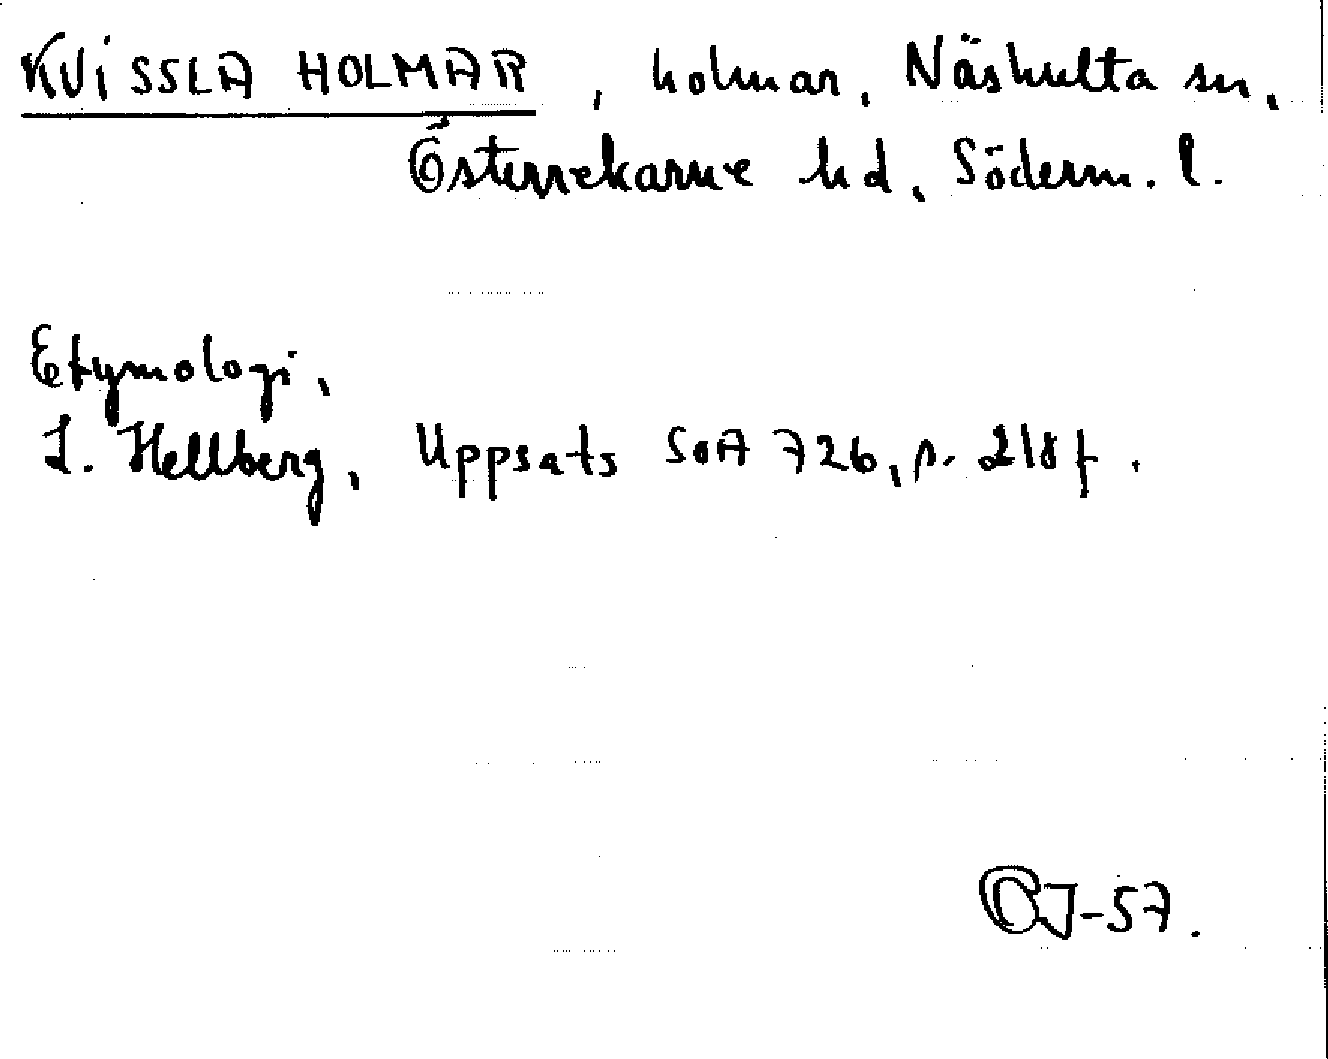 KVISSLA HOLMAR, holmar, Näshulta sn,
Österrekarne hd, Söderm. l.
Etymologi,
L. Hellberg, Uppsats SOA 726, p. 218 f.
CJ-57.